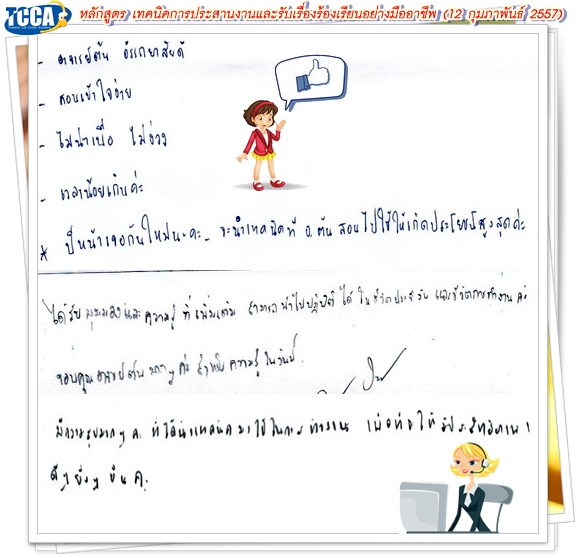 TCCA หลักสูตร เทคนิคการประสานงานและรับเรื่องร้องเรียนอย่างมืออาชีพ (12 กุมภาพันธ์ 2557)
- อาจารย์ต้น อัธยาศัยดี
- สอนเข้าใจง่าย
- ไม่น่าเบื่อ ไม่ง่วง
- เวลาน้อยเกินค่ะ
* ปีหน้าเจอกันใหม่นะคะ - จะนำเทคนิคที่ อ.ต้น สอนไปใช้ให้เกิดประโยชน์สูงสุดค่ะ
ได้รับมุมมองและความรู้ ที่เพิ่มเติม สามารถนำไปปฏิบัติ ได้ ในชีวิตประจำวัน และชีวิตการทำงาน ค่ะ
ขอบคุณอาจารย์ต้น มากๆ ค่ะ สำหรับ ความรู้ ในวันนี้
มีความสุขมากๆ ค่ะ ที่ได้นำเทคนิค มาใช้ในการ ทำงาน เพื่อทำให้
ดียิ่งๆ ขึ้น ค่ะ